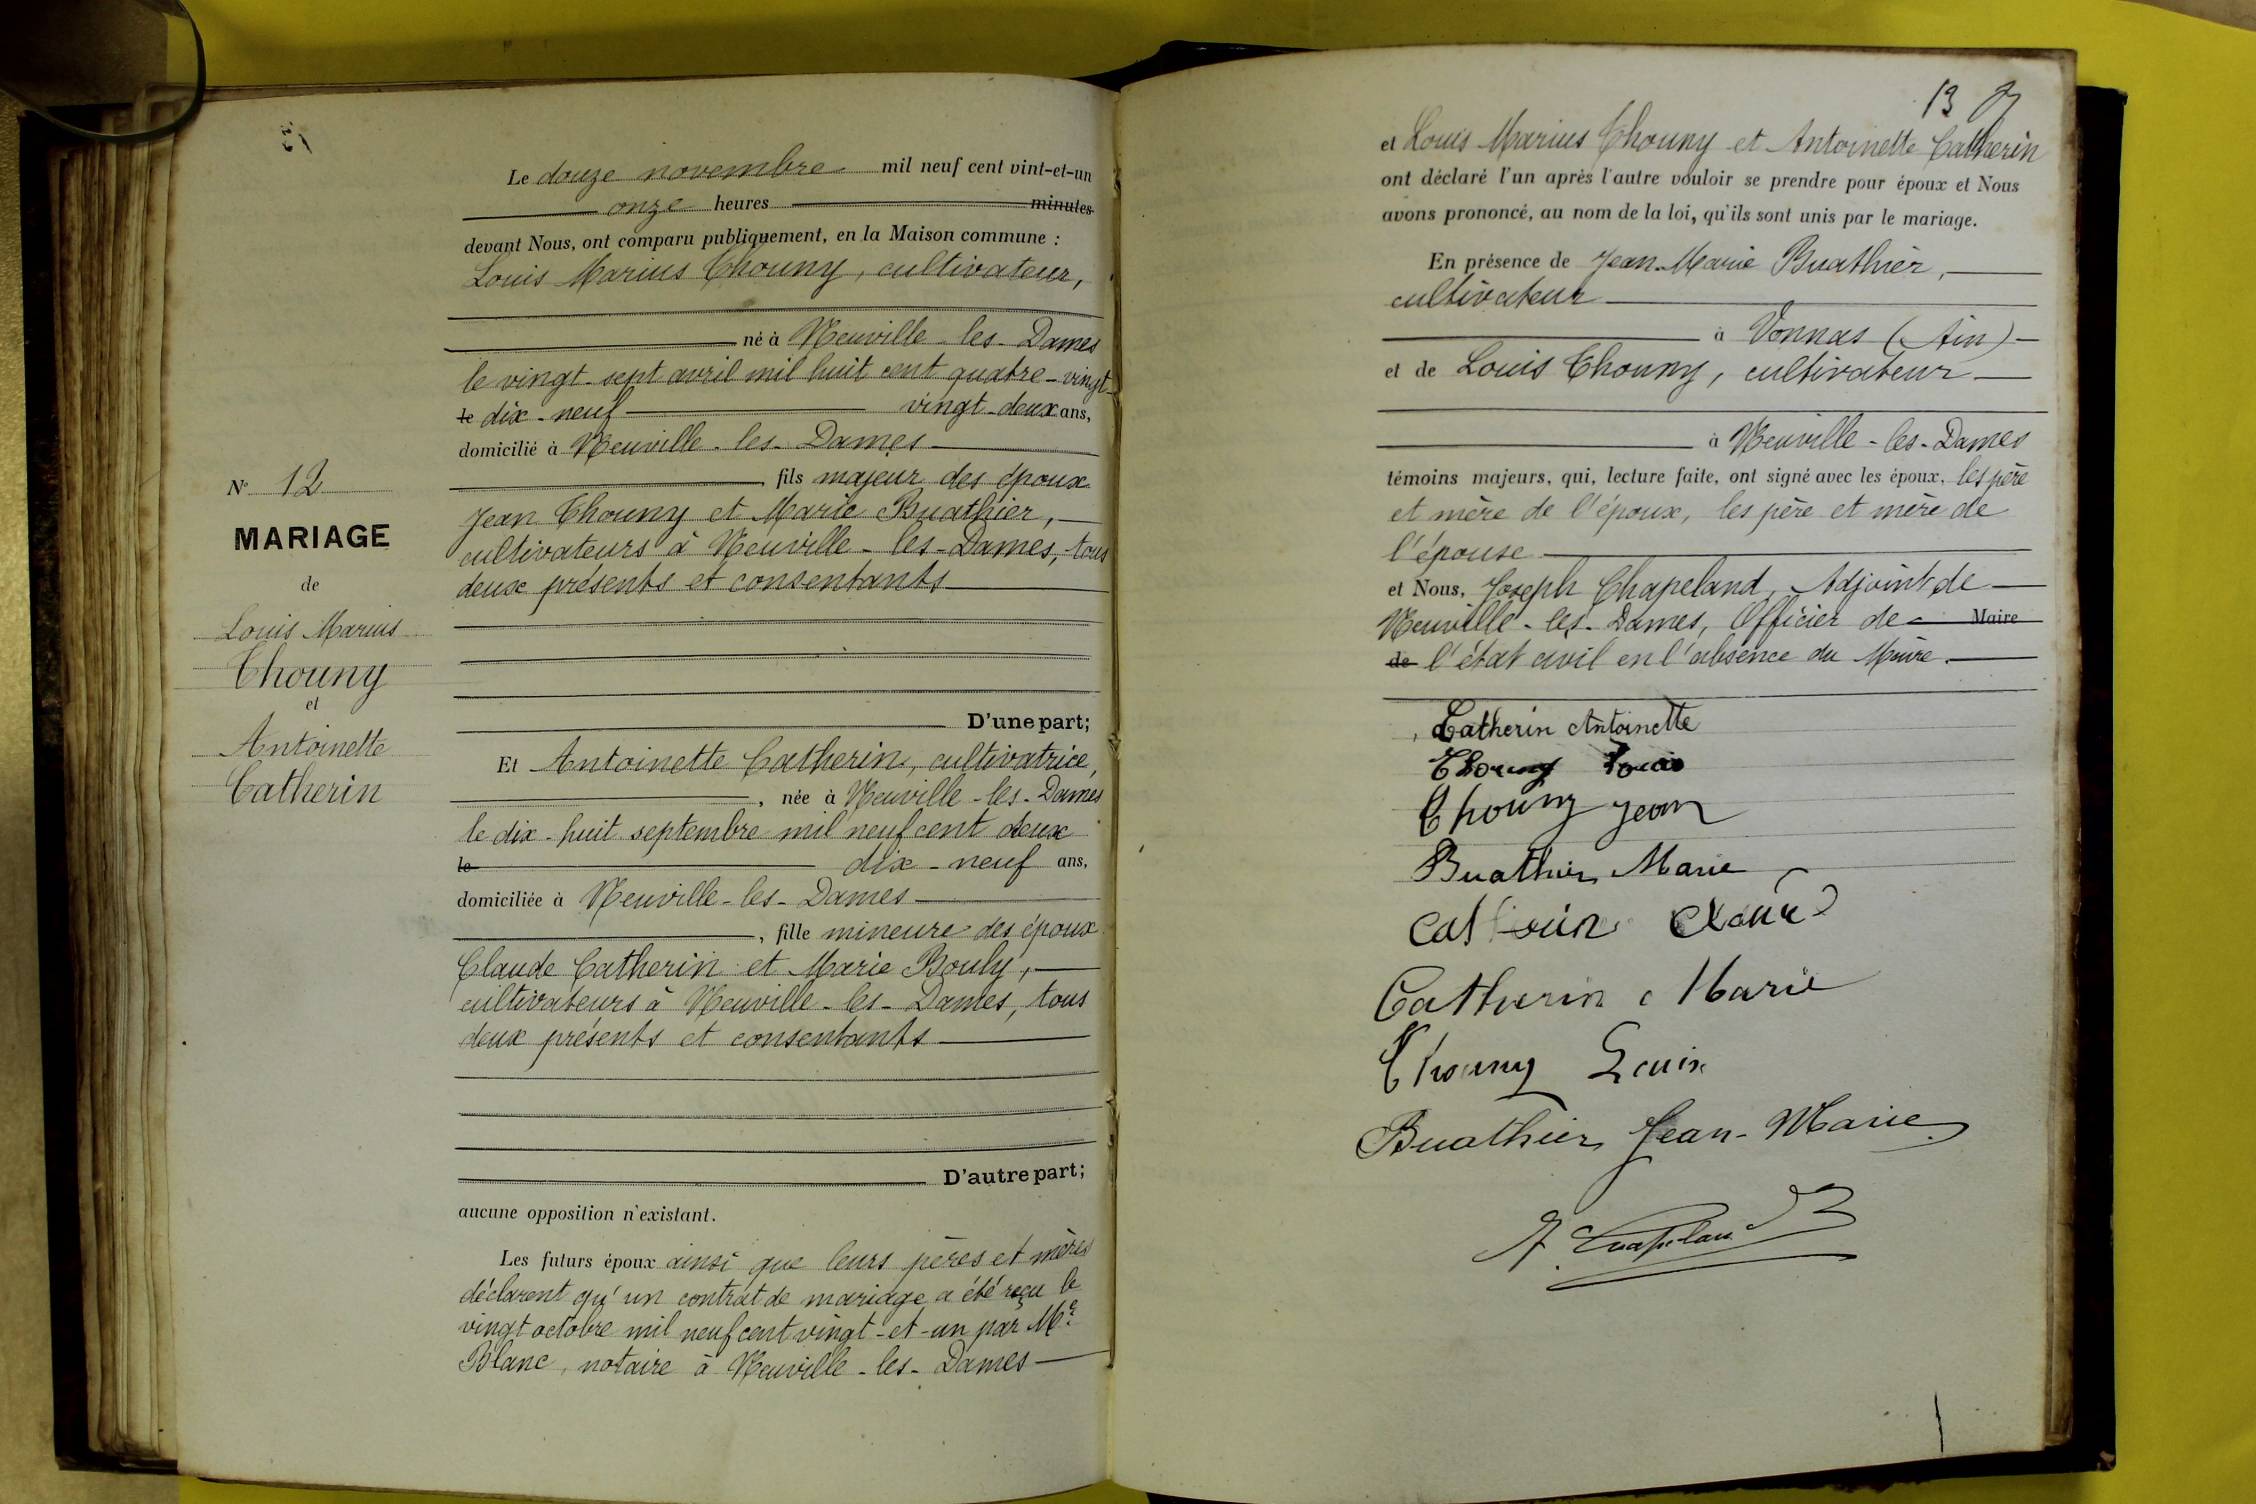 Le douze novembre mil neuf cent vint-et-un
onze heures minutes
devant Nous, ont comparu publiquement, en la Maison commune :
Louis Marius Chouny, cultivateur,
né à Neuville-les-Dames
le vingt-sept avril mil huit cent quatre-vingt-
le dix-neuf vingt-deux ans,
domicilié à Neuville-les-Dames
fils majeur des époux
Jean Chouny et Marie Buathier,
cultivateurs à Neuville-les-Dames, tous
deux présents et consentants
D'une part;
Et Antoinette Catherin, cultivatrice,
, née à Neuville-les-Dames
le dix-huit septembre mil neuf cent deux
le dix-neuf ans,
domiciliée à Neuville-les-Dames
, fille mineure des époux
Claude Catherin et Marie Bouly,
cultivateurs à Neuville-les-Dames, tous
deux présents et consentants
D'autre part;
aucune opposition n'existant.
Les futurs époux ainsi que leurs pères et mères
déclarent qu'un contrat de mariage a été reçu le
vingt octobre mil neuf cent vingt-et-un par Me
Blanc, notaire à Neuville-les-Dames
No 12
MARIAGE
de
Louis Marius
Chouny
et
Antoinette
Catherin
13
et Louis Marius Chouny et Antoinette Catherin
ont déclaré l'un après l'autre vouloir se prendre pour époux et Nous
avons prononcé, au nom de la loi, qu'ils sont unis par le mariage.
En présence de Jean-Marie Buathier,
cultivateur
à Vonnas (Ain)
et de Louis Chouny, cultivateur
à Neuville-les-Dames
témoins majeurs, qui, lecture faite, ont signé avec les époux, les père
et mère de l'époux, les père et mère de
l'épouse
et Nous, Joseph Chapeland, Adjoint de
Neuville-les-Dames, Officier de Maire
de l'état civil en l'absence du Maire.
Catherin Antoinette
Chouny Louis
Chouny Jean
Buathier Marie
Catherin
Catherin Marie
Chouny Louis
Buathier Jean-Marie
J. Chapeland